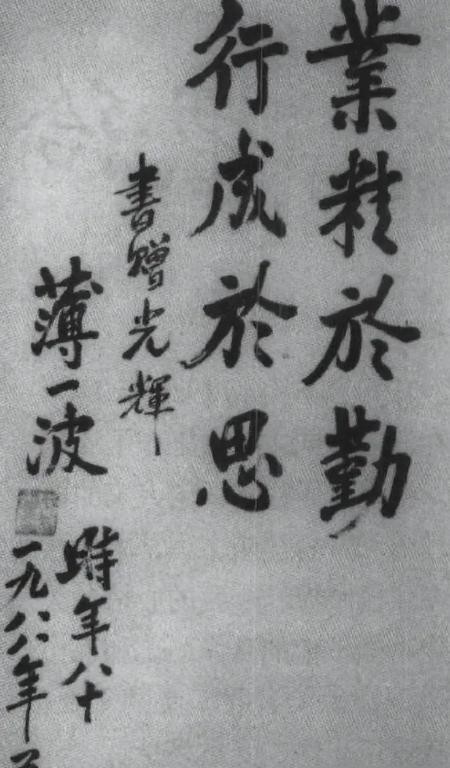 業精於勤
行成於思
書贈光輝
薄一波
時年八十
一九八八年